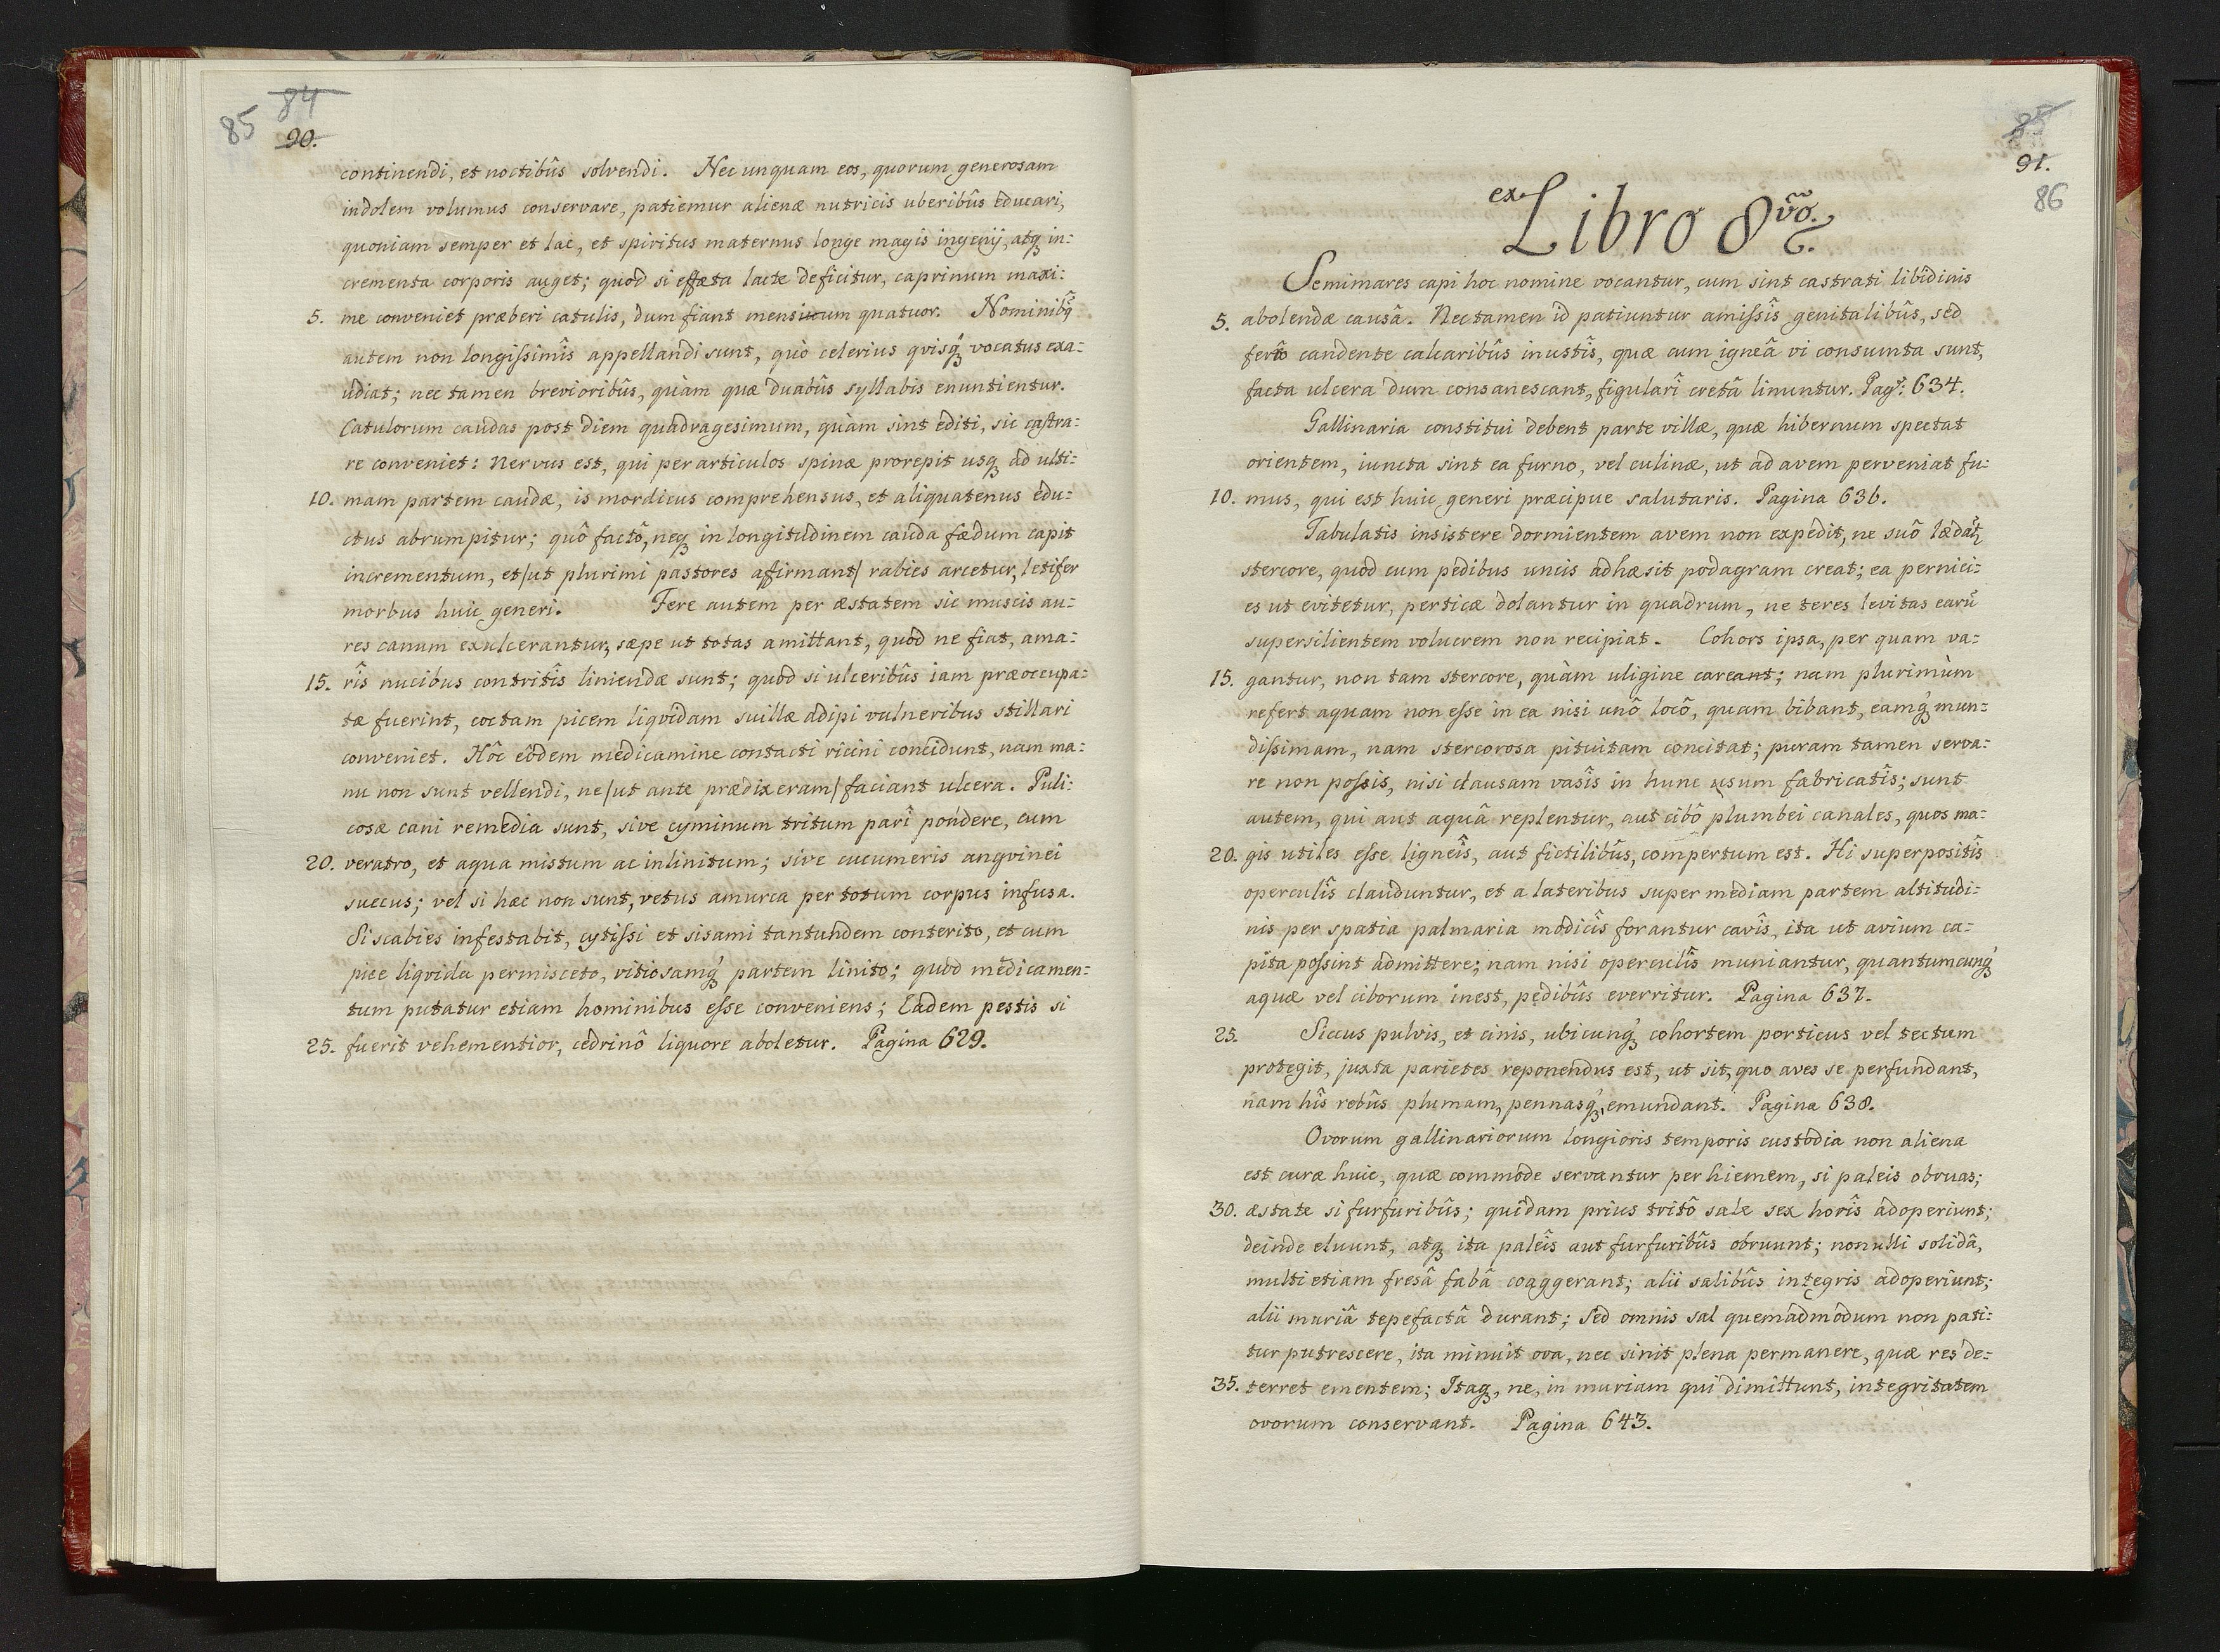 84
85
90.
continendi, et noctibûs solvendi. Nec unquam eos, quorum generosam
indolem volumus conservare, patiemur alienæ nutricis uberibûs educari,
quoniam semper et lac, et spiritus maternus longe magis ingenij, atq; in:
crementa corporis auget; quod si effæta lacte deficitur, caprinum maxi:
5. me conveniet præberi catulis, dum fiant mensium quatuor. Nominibq̃
autem non longiſsimîs appellandi sunt, quò celerius qvisq́; vocatus exa:
udiat; nec tamen brevioribûs, quàm quæ duabûs syllabis enuntientur.
Catulorum caudas post diem quadragesimum, quàm sint editi, sic castra:
re conveniet: Nervus est, qui per articulos spinæ prorepit usq; ad ulti:
10. mam partem caudæ, is mordicus comprehensus, et aliquatenus edu:
ctus abrumpitur; quô factô, neq; in longitudinem cauda fædum capit
incrementum, et/ut plurimi pastores afirmant/ rabies arcetur, letifer
morbus huic generi. Fere autem per æstatem sic muscis au:
res canum exulcerantur, sæpe ut totas amittant, quòd ne fiat, ama:
15. rîs nucibus contritîs liniendæ sunt; quòd si ulceribûs iam præoccupa:
tæ fuerint, coctam picem liqvidam suillæ adipi vulneribus stillari
conveniet. Hôc eôdem medicamine contacti ricini concidunt, nam ma:
nu non sunt vellendi, ne/ut ante prædixeram/ faciant ulcera. Puli:
cosæ cani remedia sunt, sive cyminum tritum parî pondere, cum
20. veratro, et aqua mistum ac inlinitum; sive cucumeris angvinei
succus; vel si hæc non sunt, vetus amurca per totum corpus infusa.
Si scabies infestabit, cytiſsi et sisami tantundem conterito, et cum
pice liqvida permisceto, vitiosamq́; partem linito; quod medicamen:
tum putatur etiam hominibus eſse conveniens; Eadem pestis si
25. fuerit vehementior, cedrinô liquore aboletur. Pagina 629.
85
91.
86
ex Libro 8vô.
Semimares capi hoc nomine vocantur, cum sint castrati libidinis
5. abolendæ causâ. Nec tamen id patiuntur amiſsîs genitalibûs, sed
ferrô candente calcaribûs inustîs, quæ cum igneâ vi consumta sunt,
facta ulcera dum consanescant, figularî cretâ linuntur. Pag: 634.
Gallinaria constitui debent parte villæ, quæ hibernum spectat
orientem, iuncta sint ea furno, vel culinæ, ut ad avem perveniat fu:
10. mus, qui est huic generi præcipue salutaris. Pagina 636.
Tabulatis insistere dormientem avem non expedit, ne suô lædat̃
stercore, quod cum pedibus uncis adhæsit podagram creat; ea pernici:
es ut evitetur, perticæ dolantur in quadrum, ne teres levitas earũ
supersilientem volucrem non recipiat. Cohors ipsa, per quam va:
15. gantur, non tam stercore, quàm uligine careant; nam plurimùm
refert aquam non eſse in ea nisi unô locô, quam bibant, eamq́; mun:
diſsimam, nam stercorosa pituitam concitat; puram tamen serva:
re non poſsis, nisi clausam vasîs in hunc usum fabricatîs; sunt
autem, qui aut aquâ replentur, aut cibô plumbei canales, quos ma:
20. gis utiles eſse ligneîs, aut fictilibûs, compertum est. Hi superpositîs
operculîs clauduntur, et a lateribus super mediam partem altitudi:
nis per spatia palmaria modicîs forantur cavîs, ita ut avium ca:
pita poſsint admittere; nam nisi operculîs muniantur, quantumcunq́;
aquæ vel ciborum inest, pedibûs everritur. Pagina 637.
25. Siccus pulvis, et cinis, ubicunq́; cohortem porticus vel tectum
protegit, juxta parietes reponendus est, ut sit, quo aves se perfundant,
nam hîs rebûs plumam, pennasq́; emundant. Pagina 638.
Ovorum gallinariorum longioris temporis custodia non aliena
est curæ huic, quæ commode servantur per hiemem, si paleis obruas;
30. æstate si furfuribûs; quidam prius tritô sale sex horîs adoperiunt;
deinde eluunt, atq; ita paleîs aut furfuribûs obruunt; nonulli solidâ,
multi etiam fresâ fabâ coaggerant; alii salibûs integris adoperiunt;
alii muriâ tepefactâ durant; Sed omnis sal quemadmodum non pati:
tur putrescere, ita minuit ova, nec sinit plena permanere, quæ res de:
35. terret ementem; Itaq; ne, in muriam qui dimittunt, integritatem
ovorum conservant. Pagina 643.